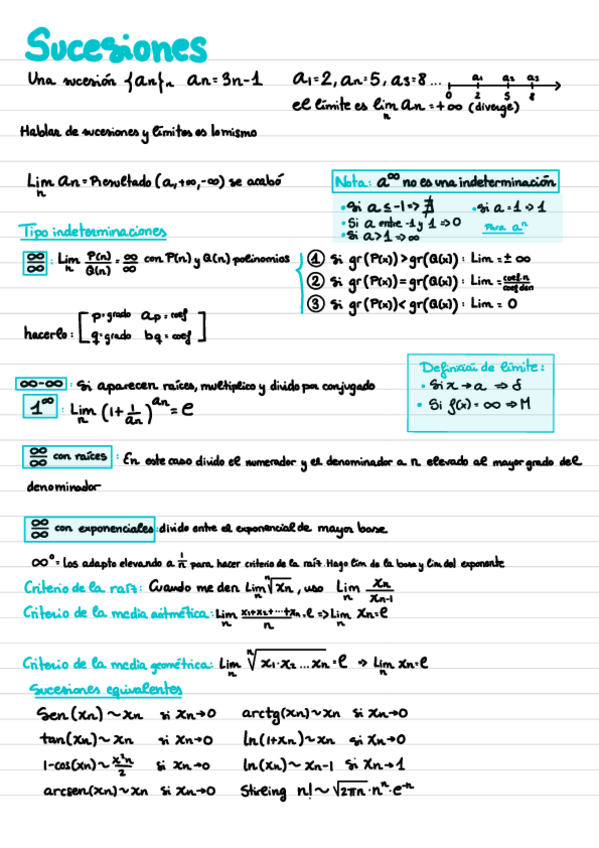 Sucesiones
Una sucesión {an}n an=3n-1 a1=2, an=5, a3=8...
a1 a2 a3
0 2 5 8
el límite es lim an=+∞ (diverge)
n
Hablar de sucesiones y límites es lo mismo
Lim an= (a,+∞,-∞) se acabó
n
Nota: a^∞ no es una indeterminación
• Si a ≤ -1 => ∄ • si a=1 => 1
• Si a entre -1 y 1 => 0 Para a^n
• Si a>1 => ∞
Tipo indeterminaciones
∞/∞ : Lim P(n)/Q(n) = ∞/∞ con P(n) y Q(n) polinomios
n
① si gr(P(x))>gr(Q(x)): Lim = ± ∞
② Si gr(P(x))=gr(Q(x)): Lim = coef.n/coef den
③ Si gr(P(x))<gr(Q(x)): Lim = 0
hacerlo: [p=grado ap=coef
q=grado bq=coef]
∞-∞ : Si aparecen raíces, multiplico y divido por conjugado
1^∞ : Lim (1+ 1/an)^an = e
n
Definición de límite:
• Si x→a => δ
• Si f(x)=∞ => M
∞/∞ con raíces : En este caso divido el numerador y el denominador a n elevado al mayor grado del
denominador
∞/∞ con exponenciales: divido entre el exponencial de mayor base
∞^0 = Los adapto elevando a 1/n para hacer criterio de la raíz. Hago lim de la base y lim del exponente
Criterio de la raíz: Cuando me den Lim ⁿ√xn, uso Lim xn/xn-1
n n
Criterio de la media aritmética: Lim x1+x2+...+xn/n = l => Lim xn=l
n n
Criterio de la media geométrica: Lim ⁿ√x1·x2...xn = l => Lim xn=l
n n
Sucesiones equivalentes
Sen(xn)~xn si xn→0 arctg(xn)~xn si xn→0
tan(xn)~xn si xn→0 ln(1+xn)~xn si xn→0
1-cos(xn)~x²n/2 si xn→0 ln(xn)~xn-1 si xn→1
arcsen(xn)~xn si xn→0 Stirling n!~√2πn·n^n·e^-n